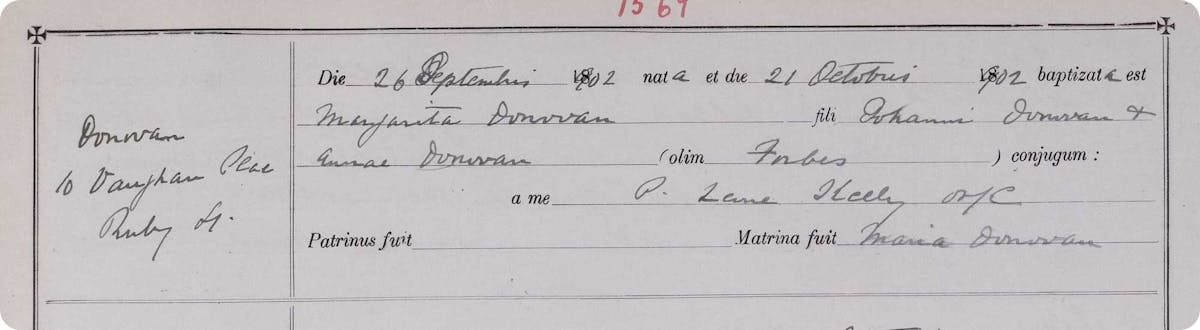 1569
Donovan
10 Vaughan Place
Ruby St.
Die 26 Septembris 1902 nata et die 21 Octobris 1902 baptizata est
Margarita Donovan fili Johanni Donovan &
Annae Donovan (olim Forbes ) conjugum :
a me P.
Patrinus fuit Matrina fuit Maria Donovan